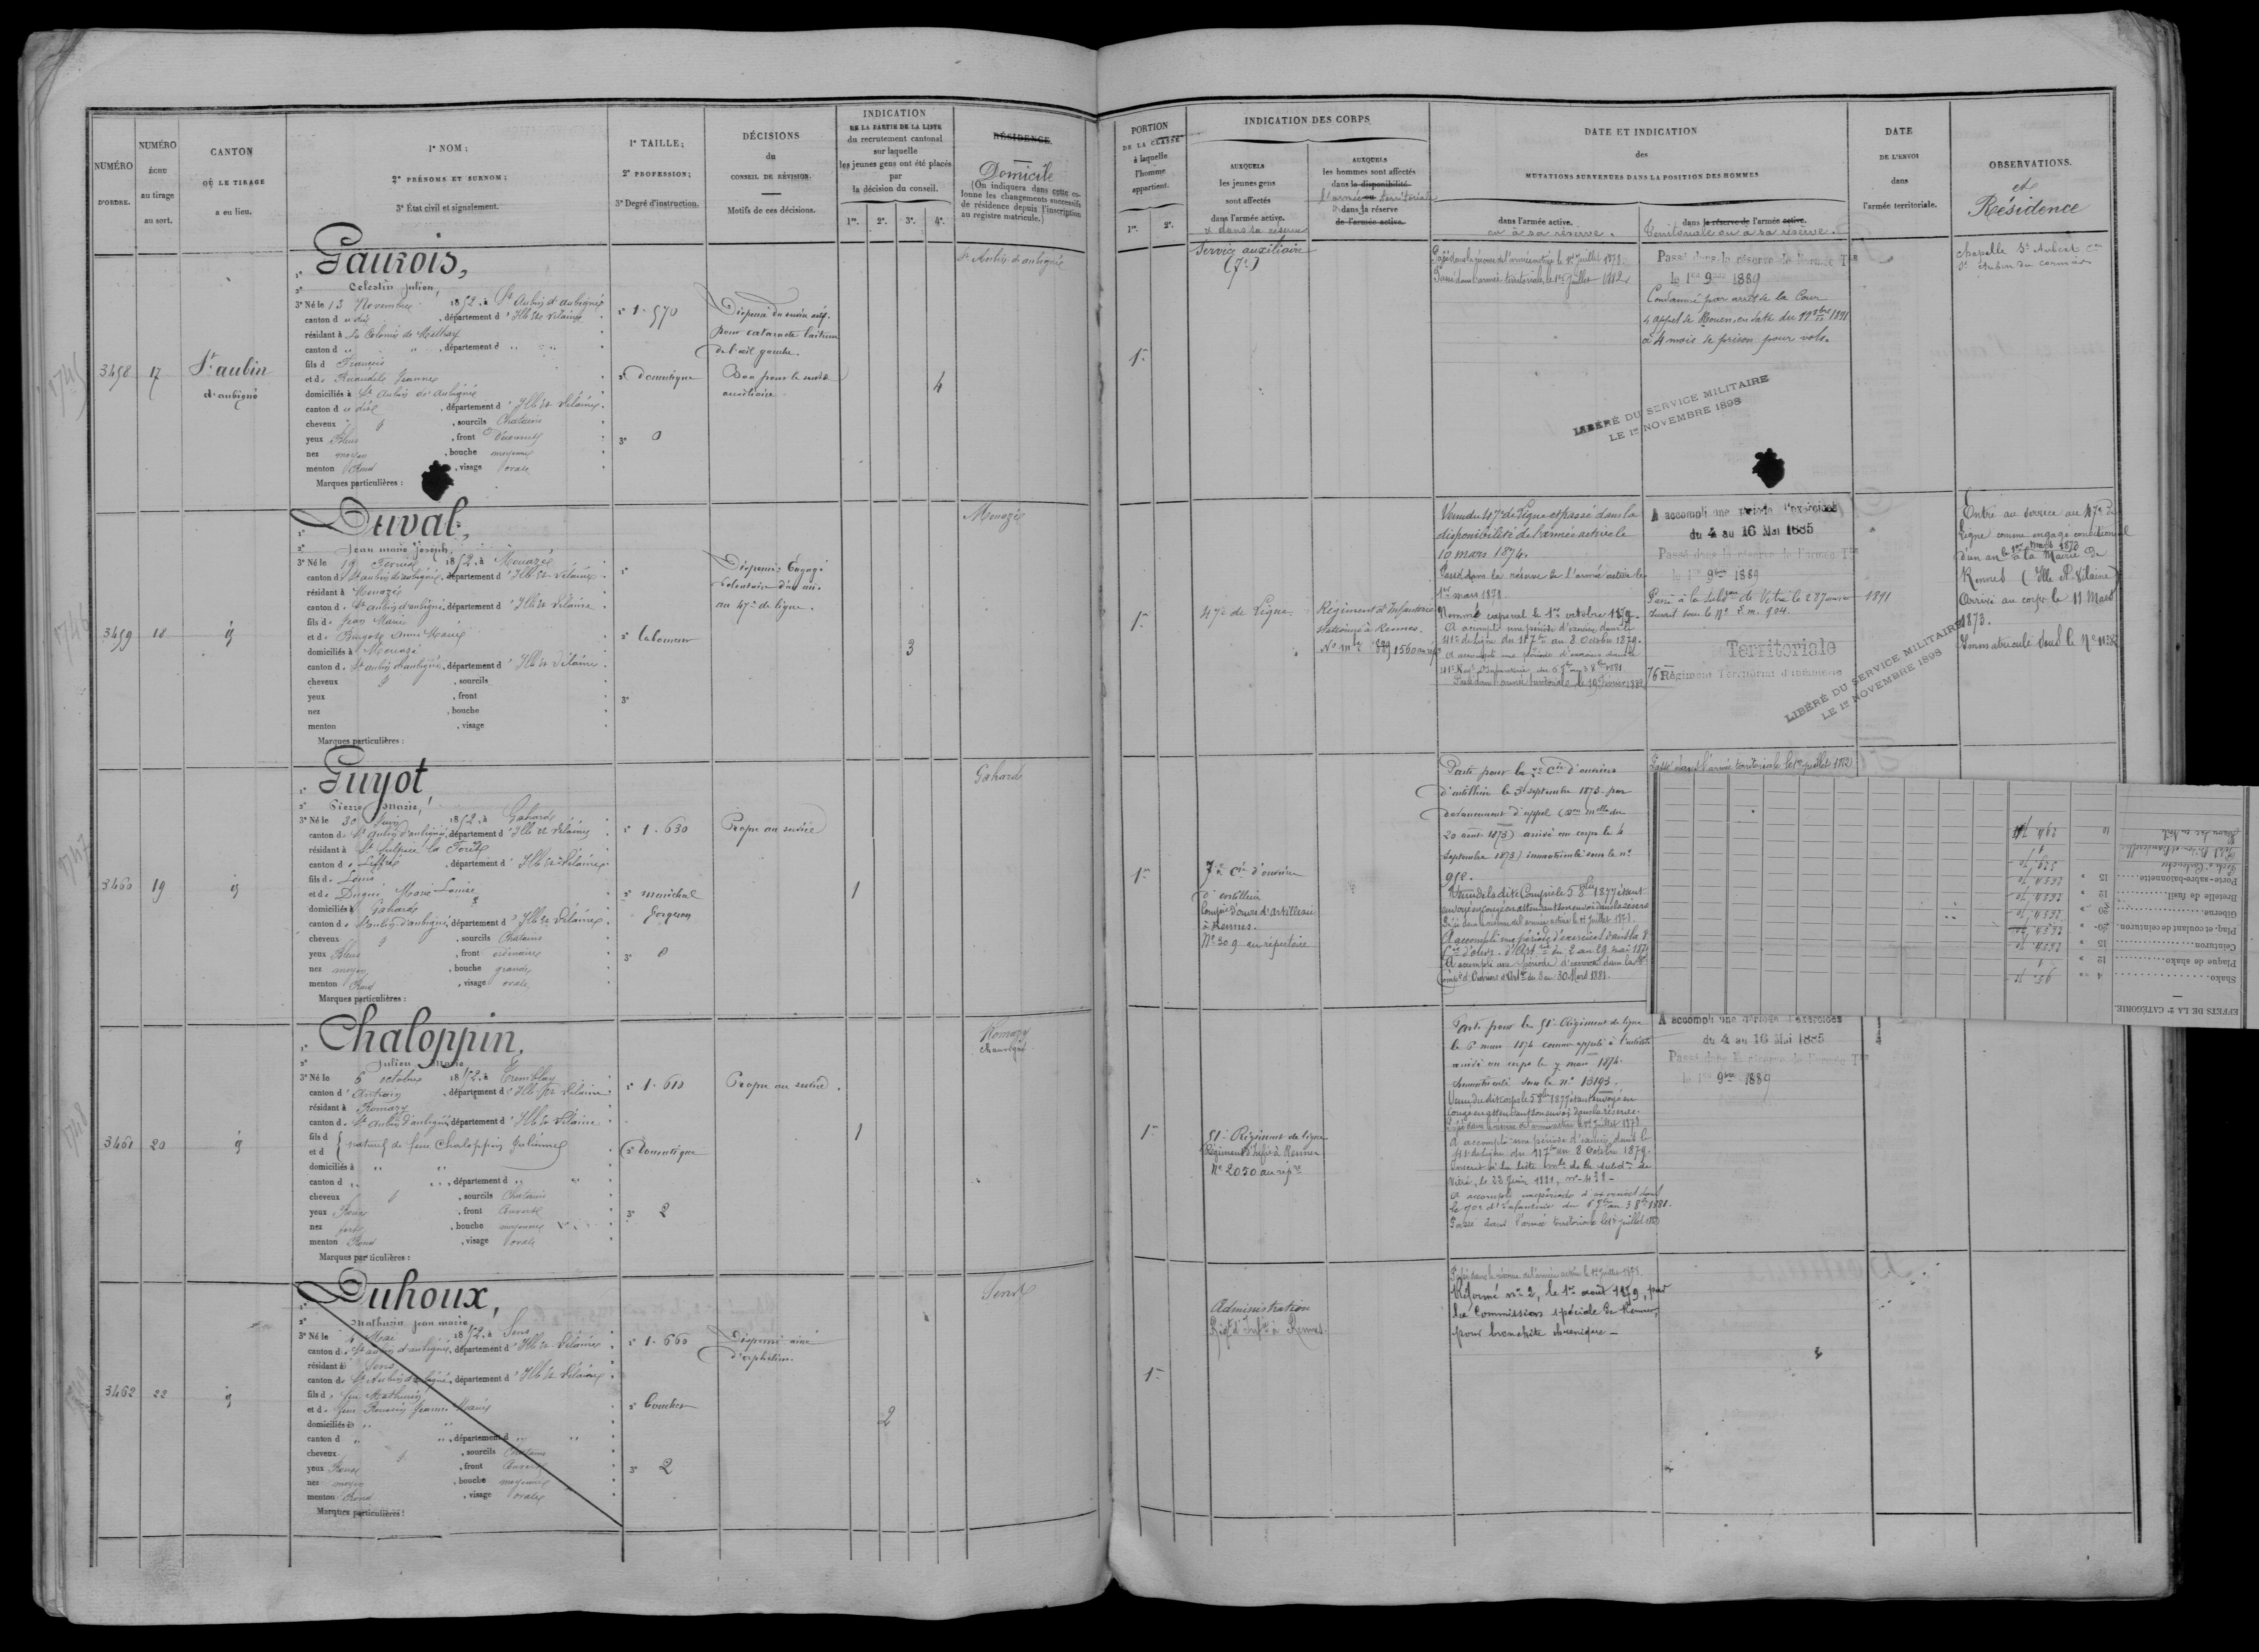 NUMÉRO
D'ORDRE.
NUMÉRO
ÉCHU
au tirage
au sort.
CANTON
OÙ LE TIRAGE
a eu lieu.
1° NOM ;
2° PRÉNOMS ET SURNOM ;
3° État civil et signalement.
1° TAILLE ;
2° PROFESSION ;
3° Degré d'instruction.
DÉCISIONS
du
CONSEIL DE RÉVISION.
Motifs de ces décisions.
INDICATION
DE LA PARTIE DE LA LISTE
du recrutement cantonal
sur laquelle
les jeunes gens ont été placés
par
la décision du conseil.
1re. 2e. 3e. 4e.
RÉSIDENCE
Domicile
(On indiquera dans cette co-
lonne les changements successifs
de résidence depuis l'inscription
au registre matricule.)
3458
17
St aubin
d'aubigné
Gaurois,
Celestin Julien,
3° Né le 13 Novembre 1852, à St Aubin d'aubigné
canton du dit, département d'Ille et Vilaine
résidant à La Colonie de
canton d " ", département d " "
fils d François
et de Jeanne
domiciliés à St Aubin d'Aubigné
canton du dit, département d'Ille et Vilaine.
cheveux, sourcils Chatains
yeux Bleus, front Découvert
nez moyen, bouche moyenne
menton Rond, visage ovale
Marques particulières :
1° 1.570
2° Domestique
3° 0
Dispensé du service actif
pour cataracte
de l'œil gauche.
Bon pour le service
auxiliaire
4
St Aubin d'aubigné
3459
18
id
Duval,
Jean marie Joseph,
3° Né le 19 Fevrier 1852, à Mouazé
canton de St aubin d'aubigné, département d'Ille et Vilaine.
résidant à Mouazé
canton de St aubin d'aubigné, département d'Ille et Vilaine
fils de Jean Marie
et de Anne Marie
domiciliés à Mouazé
canton de St aubin d'aubigné, département d'Ille et Vilaine.
cheveux, sourcils
yeux, front
nez, bouche
menton, visage
Marques particulières :
2° laboureur
3°
Dispensé Engagé
volontaire d'un an
au 47e de ligne.
3
Mouazé
3460
19
id
Guyot
Pierre Marie,
3° Né le 30 Juin 1852, à Gahard
canton de St aubin d'aubigné, département d'Ille et Vilaine
résidant à St Sulpice la Forêt
canton de Liffré, département d'Ille et Vilaine
fils de Louis
et de Marie Louise
domiciliés à Gahard
canton de St aubin d'aubigné, département d'Ille et Vilaine
cheveux, sourcils Chatains
yeux Bleus, front ordinaire
nez moyen, bouche grande
menton Rond, visage ovale
Marques particulières :
1° 1.630
2° maréchal
forgeron
3° 0
Propre au service
1
Gahard
3461
20
id
Chaloppin,
Julien Marie
3° Né le 6 octobre 1852, à Tremblay
canton d'Antrain, département d'Ille et Vilaine
résidant à Romazy
canton de St Aubin d'aubigné, département d'Ille et Vilaine
fils d
et d
naturel de feue Chaloppin Julienne
domiciliés à " "
canton d " ", département d " "
cheveux, sourcils Chatains
yeux Roux, front Couvert
nez fort, bouche moyenne
menton Rond, visage ovale
Marques particulières :
1° 1.610
2° Domestique
3° 2
Propre au service.
1
Romazy
3462
22
id
Duhoux,
Mathurin jean marie
3° Né le 4 Mai 1852, à Sens
canton de St aubin d'aubigné, département d'Ille et Vilaine
résidant à Sens
canton de St Aubin d'aubigné, département d'Ille et Vilaine
fils de feu Mathurin
et de feue Jeanne Marie
domiciliés à " "
canton d " ", département d " "
cheveux, sourcils Chatains
yeux Roux, front Couvert
nez moyen, bouche moyenne
menton Rond, visage ovale
Marques particulières :
1° 1.660
3° 2
Dispensé ainé
d'orphelins.
2
Sens
PORTION
DE LA CLASSE
à laquelle
l'homme
appartient.
1re. 2e.
INDICATION DES CORPS
AUXQUELS
les jeunes gens
sont affectés
dans l'armée active.
et dans sa réserve
AUXQUELS
les hommes sont affectés
dans la disponibilité
l'armée territoriale
et dans la réserve
de l'armée active.
DATE ET INDICATION
des
MUTATIONS SURVENUES DANS LA POSITION DES HOMMES
dans l'armée active.
ou à sa réserve.
dans la réserve de l'armée active.
territoriale ou à sa réserve.
DATE
DE L'ENVOI
dans
l'armée territoriale.
OBSERVATIONS.
et
Résidence
1re
Service auxiliaire
(7e)
Passé dans la réserve de l'armée active le 1er Juillet 1878.
Passé dans l'armée territoriale, le 1er Juillet 1882
Passé dans la réserve de l'armée Tle
le 1er 9bre 1889
Condamné par arrêt de la Cour
d'appel de Rouen en date du 1891
à 4 mois de prison pour vols.
LIBÉRÉ DU SERVICE MILITAIRE
LE 1er NOVEMBRE 1898
chapelle St Aubert
St Aubin du cormier
1re
47e de Ligne
Régiment d'Infanterie
stationné à Rennes.
1560 au rép
Venu du 47e de Ligne et passé dans la
disponibilité de l'armée active le
10 mars 1874.
Passé dans la réserve de l'armée active le
1er mars 1878
Nommé caporal le 1er octobre 1879.
A accompli une période d'exercices dans le
41e de Ligne du 11 7bre au 8 Octobre 1879.
A accompli une période d'exercices dans le
41e Rgt d'Infanterie, du 6 7bre au 3 8bre 1881.
Passé dans l'armée territoriale le
A accompli une période d'exercices
du 4 au 16 Mai 1885
Passé dans la réserve de l'armée Tle
le 1er 9bre 1889
Passé à la subdon de Vitré le
Inscrit sous le No 904.
1891
Territoriale
76 Régiment Territorial d'Infanterie
LIBÉRÉ DU SERVICE MILITAIRE
LE 1er NOVEMBRE 1898
Entré au service au 47e de
Ligne comme engagé conditionnel
d'un an le 1er mars 1873
à la Mairie de
Rennes (Ille et Vilaine)
Arrivé au corps le 11 Mars
1873.
Immatriculé sous le No
1re
7e Cie d'ouvriers
d'artillerie
à Rennes.
No 309 au répertoire
Parti pour la 7e Cie d'ouvriers
d'artillerie le 3 septembre 1873. par
devancement d'appel
20 août 1873) arrivé au corps le 4
septembre 1873) immatriculé sous le no
952.
Venu de la dite Compagnie le 5 8bre 1877 étant
envoyé en congé en attendant son envoi dans la réserve
Passé dans la réserve de l'armée active le 1er Juillet 1878.
A accompli une période d'exercices dans la 8e
du 2 au 29 mai
A accompli une période d'exercices dans la
d'Ouvriers d'Artie du 3 au 30 Mars 1881.
Passé dans l'armée territoriale le 1er juillet 1882
EFFETS DE LA 2e CATÉGORIE.
Shako
Plaque de shako
Ceinturon
Plaq. et coulant de ceinturon.
Giberne
Bretelle de fusil
Porte-sabre-baïonnette
1re
51e Régiment de ligne
Régiment d'Infie à Rennes
No 2050 au répre
Parti pour le 51e Régiment de ligne
le 6 mars 1874 comme appelé à l'activité
arrivé au corps le 7 mars 1874.
Immatriculé sous le no 13193.
Venu du dit corps le 5 8bre 1877 étant envoyé en
congé en attendant son envoi dans la réserve.
Passé dans la réserve de l'armée active le 1er Juillet 1878
A accompli une période d'exercices dans le
41e de Ligne du 11 7bre au 8 Octobre 1879.
Inscrit à la liste mle de la subdon de
Vitré, le 23 Juin 1881,
A accompli une période d'exercices dans
le 70e d'Infanterie du 6 7bre au 3 8bre 1881.
Passé dans l'armée territoriale le 1er juillet 1882
A accompli une période d'exercices
du 4 au 16 Mai 1885
Passé dans la réserve de l'armée Tle
le 1er 9bre 1889
1re
Administration
Régt d'Infie à Rennes.
Passé dans la réserve de l'armée active le 1er Juillet 1878.
Réformé no 2, le 1er août 1879, par
la Commission spéciale de Rennes,
pour bronchite chronique –